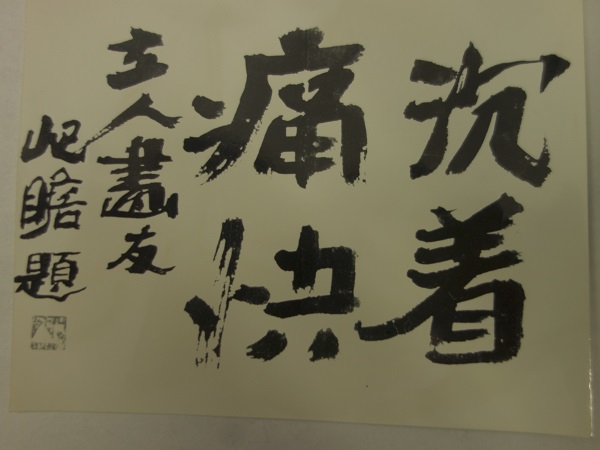 沉着
痛快
立人畫友
屺瞻題